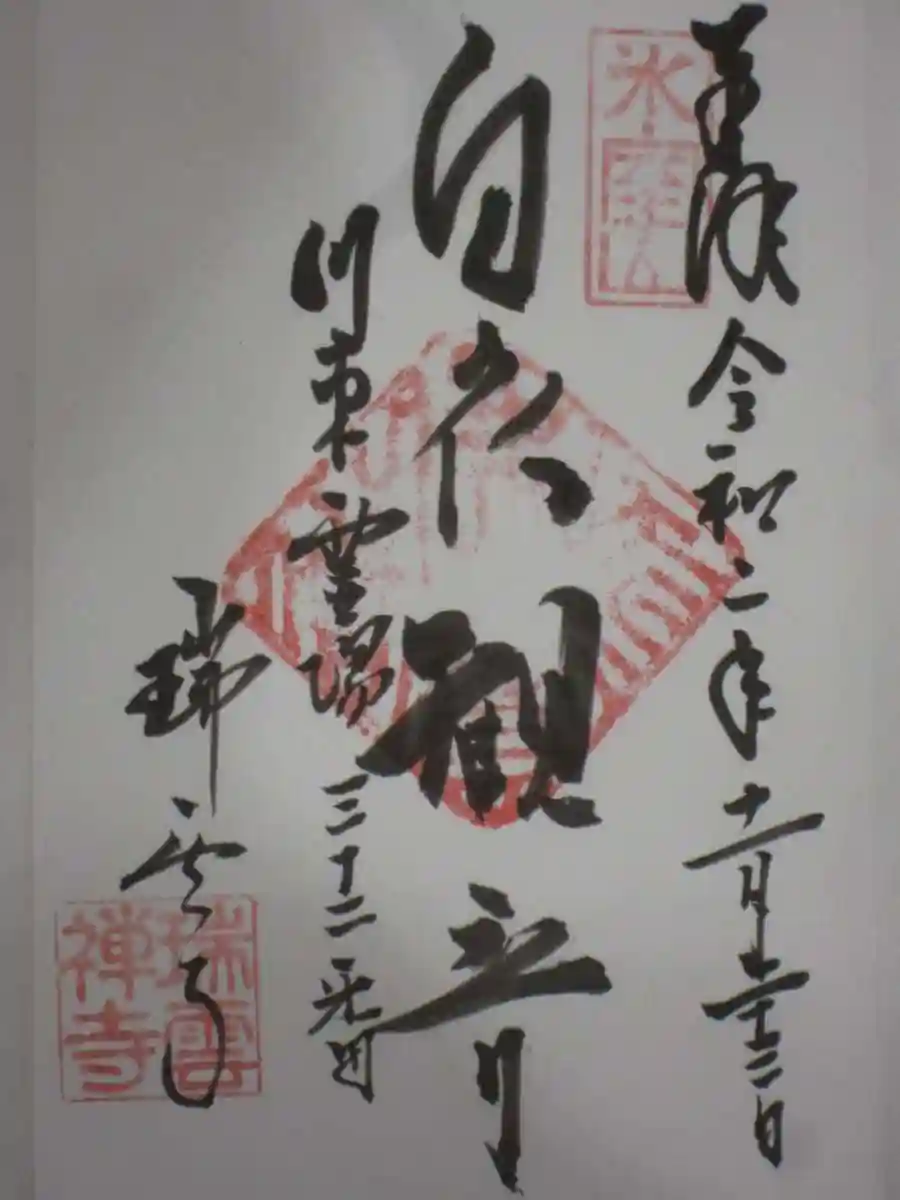 奉拝 令和二年十一月二十二日
白衣観音
川東霊場 三十二番
瑞雲寺
瑞雲
禅寺